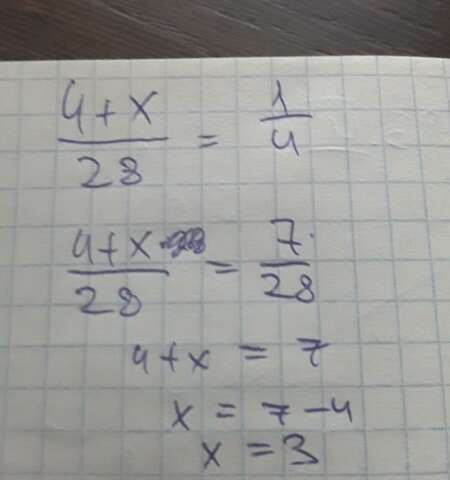 4+x/28 = 1/4
4+x/28 = 7/28
4+x = 7
x = 7-4
x = 3